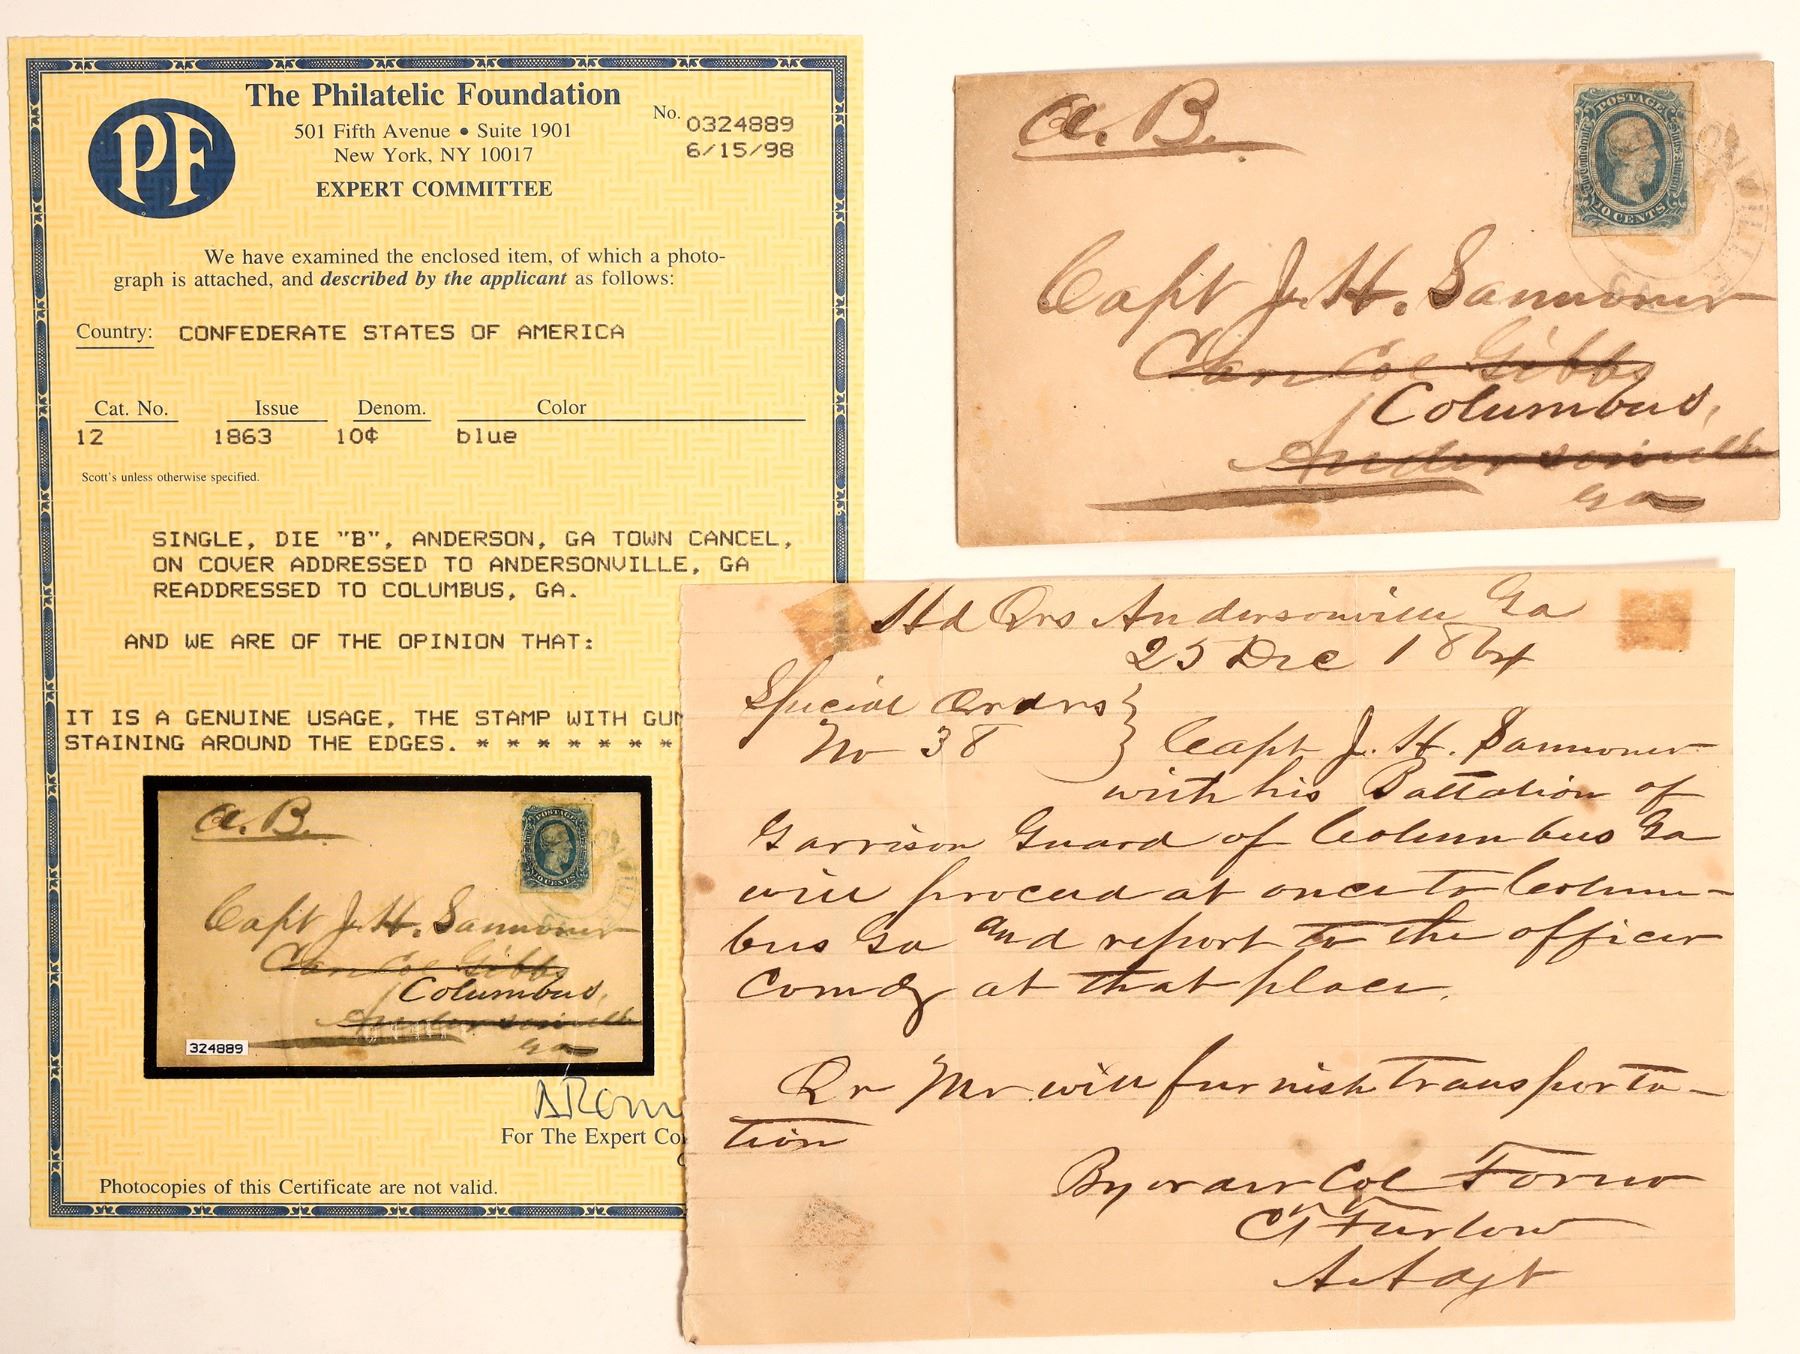 The Philatelic Foundation
501 Fifth Avenue • Suite 1901
New York, NY 10017
EXPERT COMMITTEE
No. 0324889
6/15/98
PF
We have examined the enclosed item, of which a photo-
graph is attached, and described by the applicant as follows:
Country: CONFEDERATE STATES OF AMERICA
Cat. No. Issue Denom. Color
12 1863 10¢ blue
Scott's unless otherwise specified.
SINGLE, DIE "B", ANDERSON, GA TOWN CANCEL,
ON COVER ADDRESSED TO ANDERSONVILLE, GA
READDRESSED TO COLUMBUS, GA.
AND WE ARE OF THE OPINION THAT:
IT IS A GENUINE USAGE, THE STAMP WITH GUM
STAINING AROUND THE EDGES. * * * * * * *
a. B.
POSTAGE
10 CENTS
Capt J. H. Sannoner
Care Col Gibbs
Columbus,
Andersonville
Ga
324889
For The Expert Co
Photocopies of this Certificate are not valid.
a. B.
POSTAGE
10 CENTS
ONVILLE
Capt J. H. Sannoner
Care Col Gibbs
Columbus,
Andersonville
Ga
Hd Qrs Andersonville Ga
25 Dec 1864
Special Orders
No 38
Capt J. H. Sannoner
with his Battalion of
Garrison Guard of Columbus Ga
will proceed at once to Colum-
bus Ga and report to the officer
Comdg at that place.
Qr Mr will furnish transporta-
tion
By order Col Forno
Furlow
A. Adjt